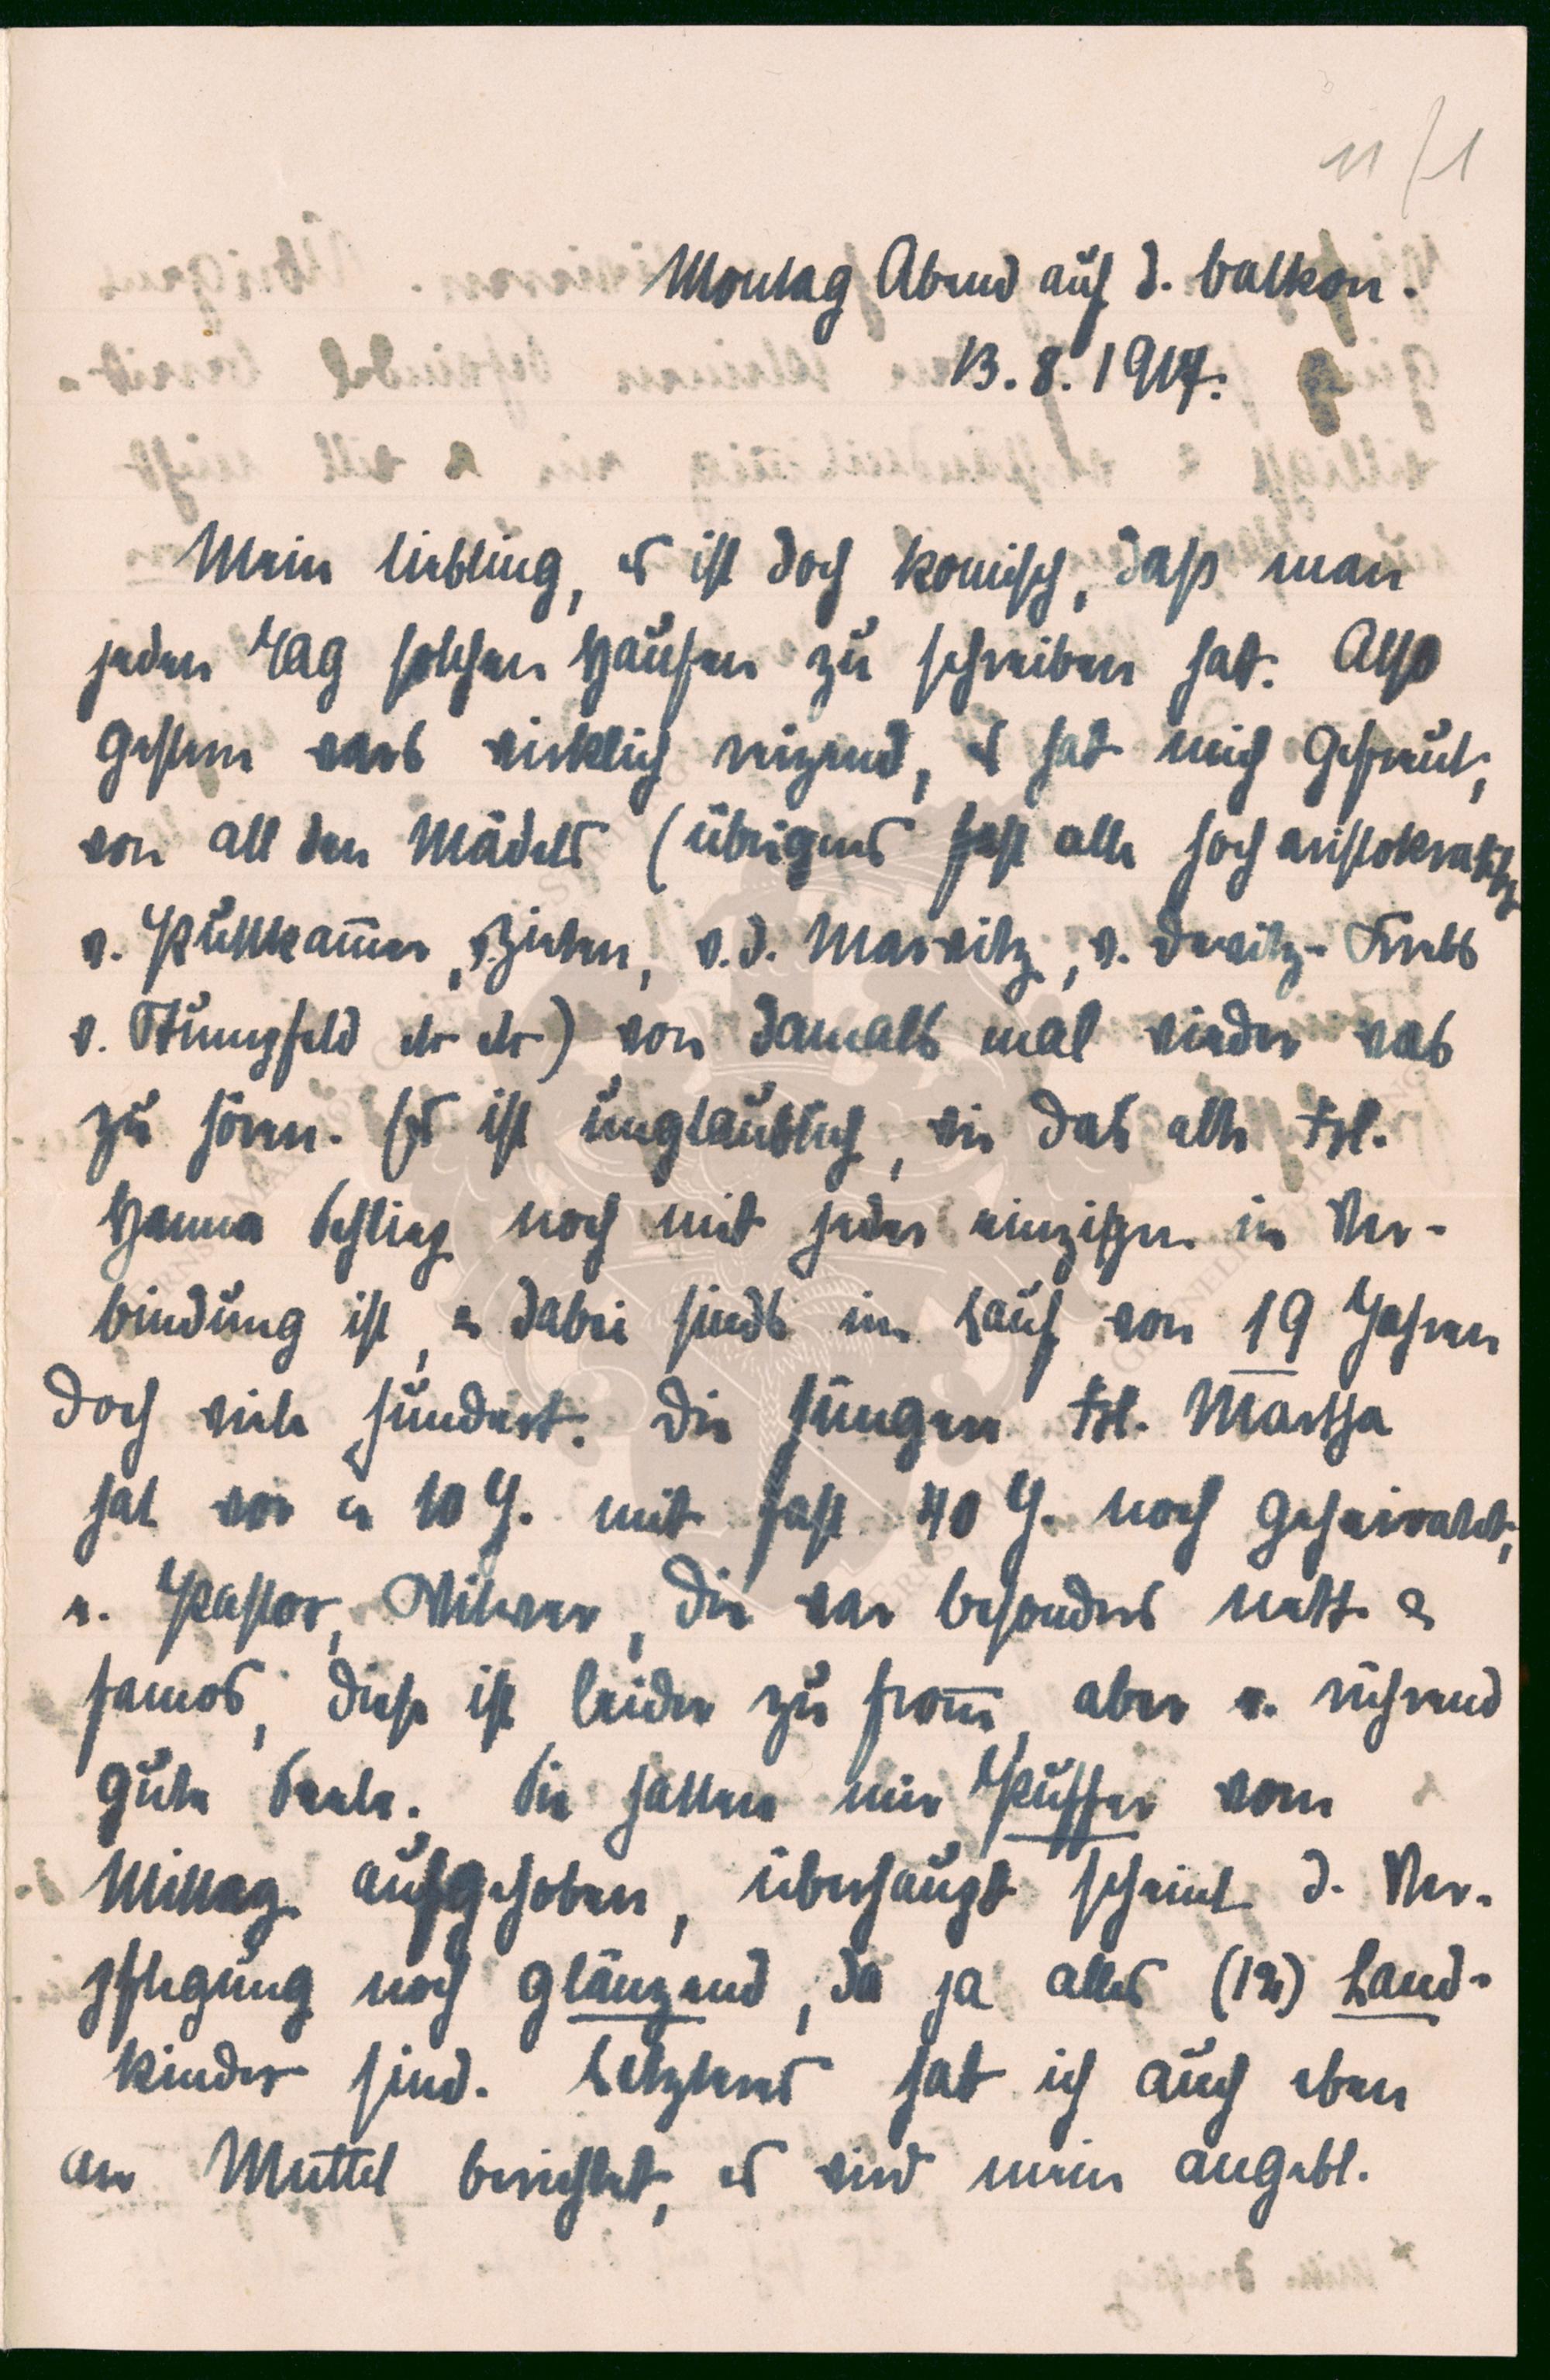 11/1
Montag Abend auf d. Balkon.
13.8.1917.
Mein Liebling, es ist doch komisch, daß man
jeden Tag solchen Haufen zu schreiben hat. Also
gestern wars wirklich reizend, es hat mich gefreut,
von all den Mädels (übrigens fast alle hocharistokratisch
v. Puttkamer, v. Zieten, v. d. Marwitz, v. Dewitz-Krebs
v. Stumpfeld etc etc) von damals mal wieder was
zu hören. Es ist unglaublich, wie das alte Frl.
Hanna Schlieg noch mit jeder einzigen in Ver-
bindung ist, & dabei sinds im Lauf von 19 Jahren
doch viele hundert. Die jüngere Frl. Martha
hat vor c 10 J. mit fast 40 J. noch geheiratet,
e. Pastor, Witwer, die war besonders nett &
famos, diese ist leider zu fromm, aber e. rührend
gute Seele. Sie hatten mir Puffer vom
Mittag aufgehoben, überhaupt scheint d. Ver-
pflegung noch glänzend, da ja alles (12) Land-
kinder sind. Letzteres hab ich auch eben
an Muttel berichtet, es wird mein angebl.